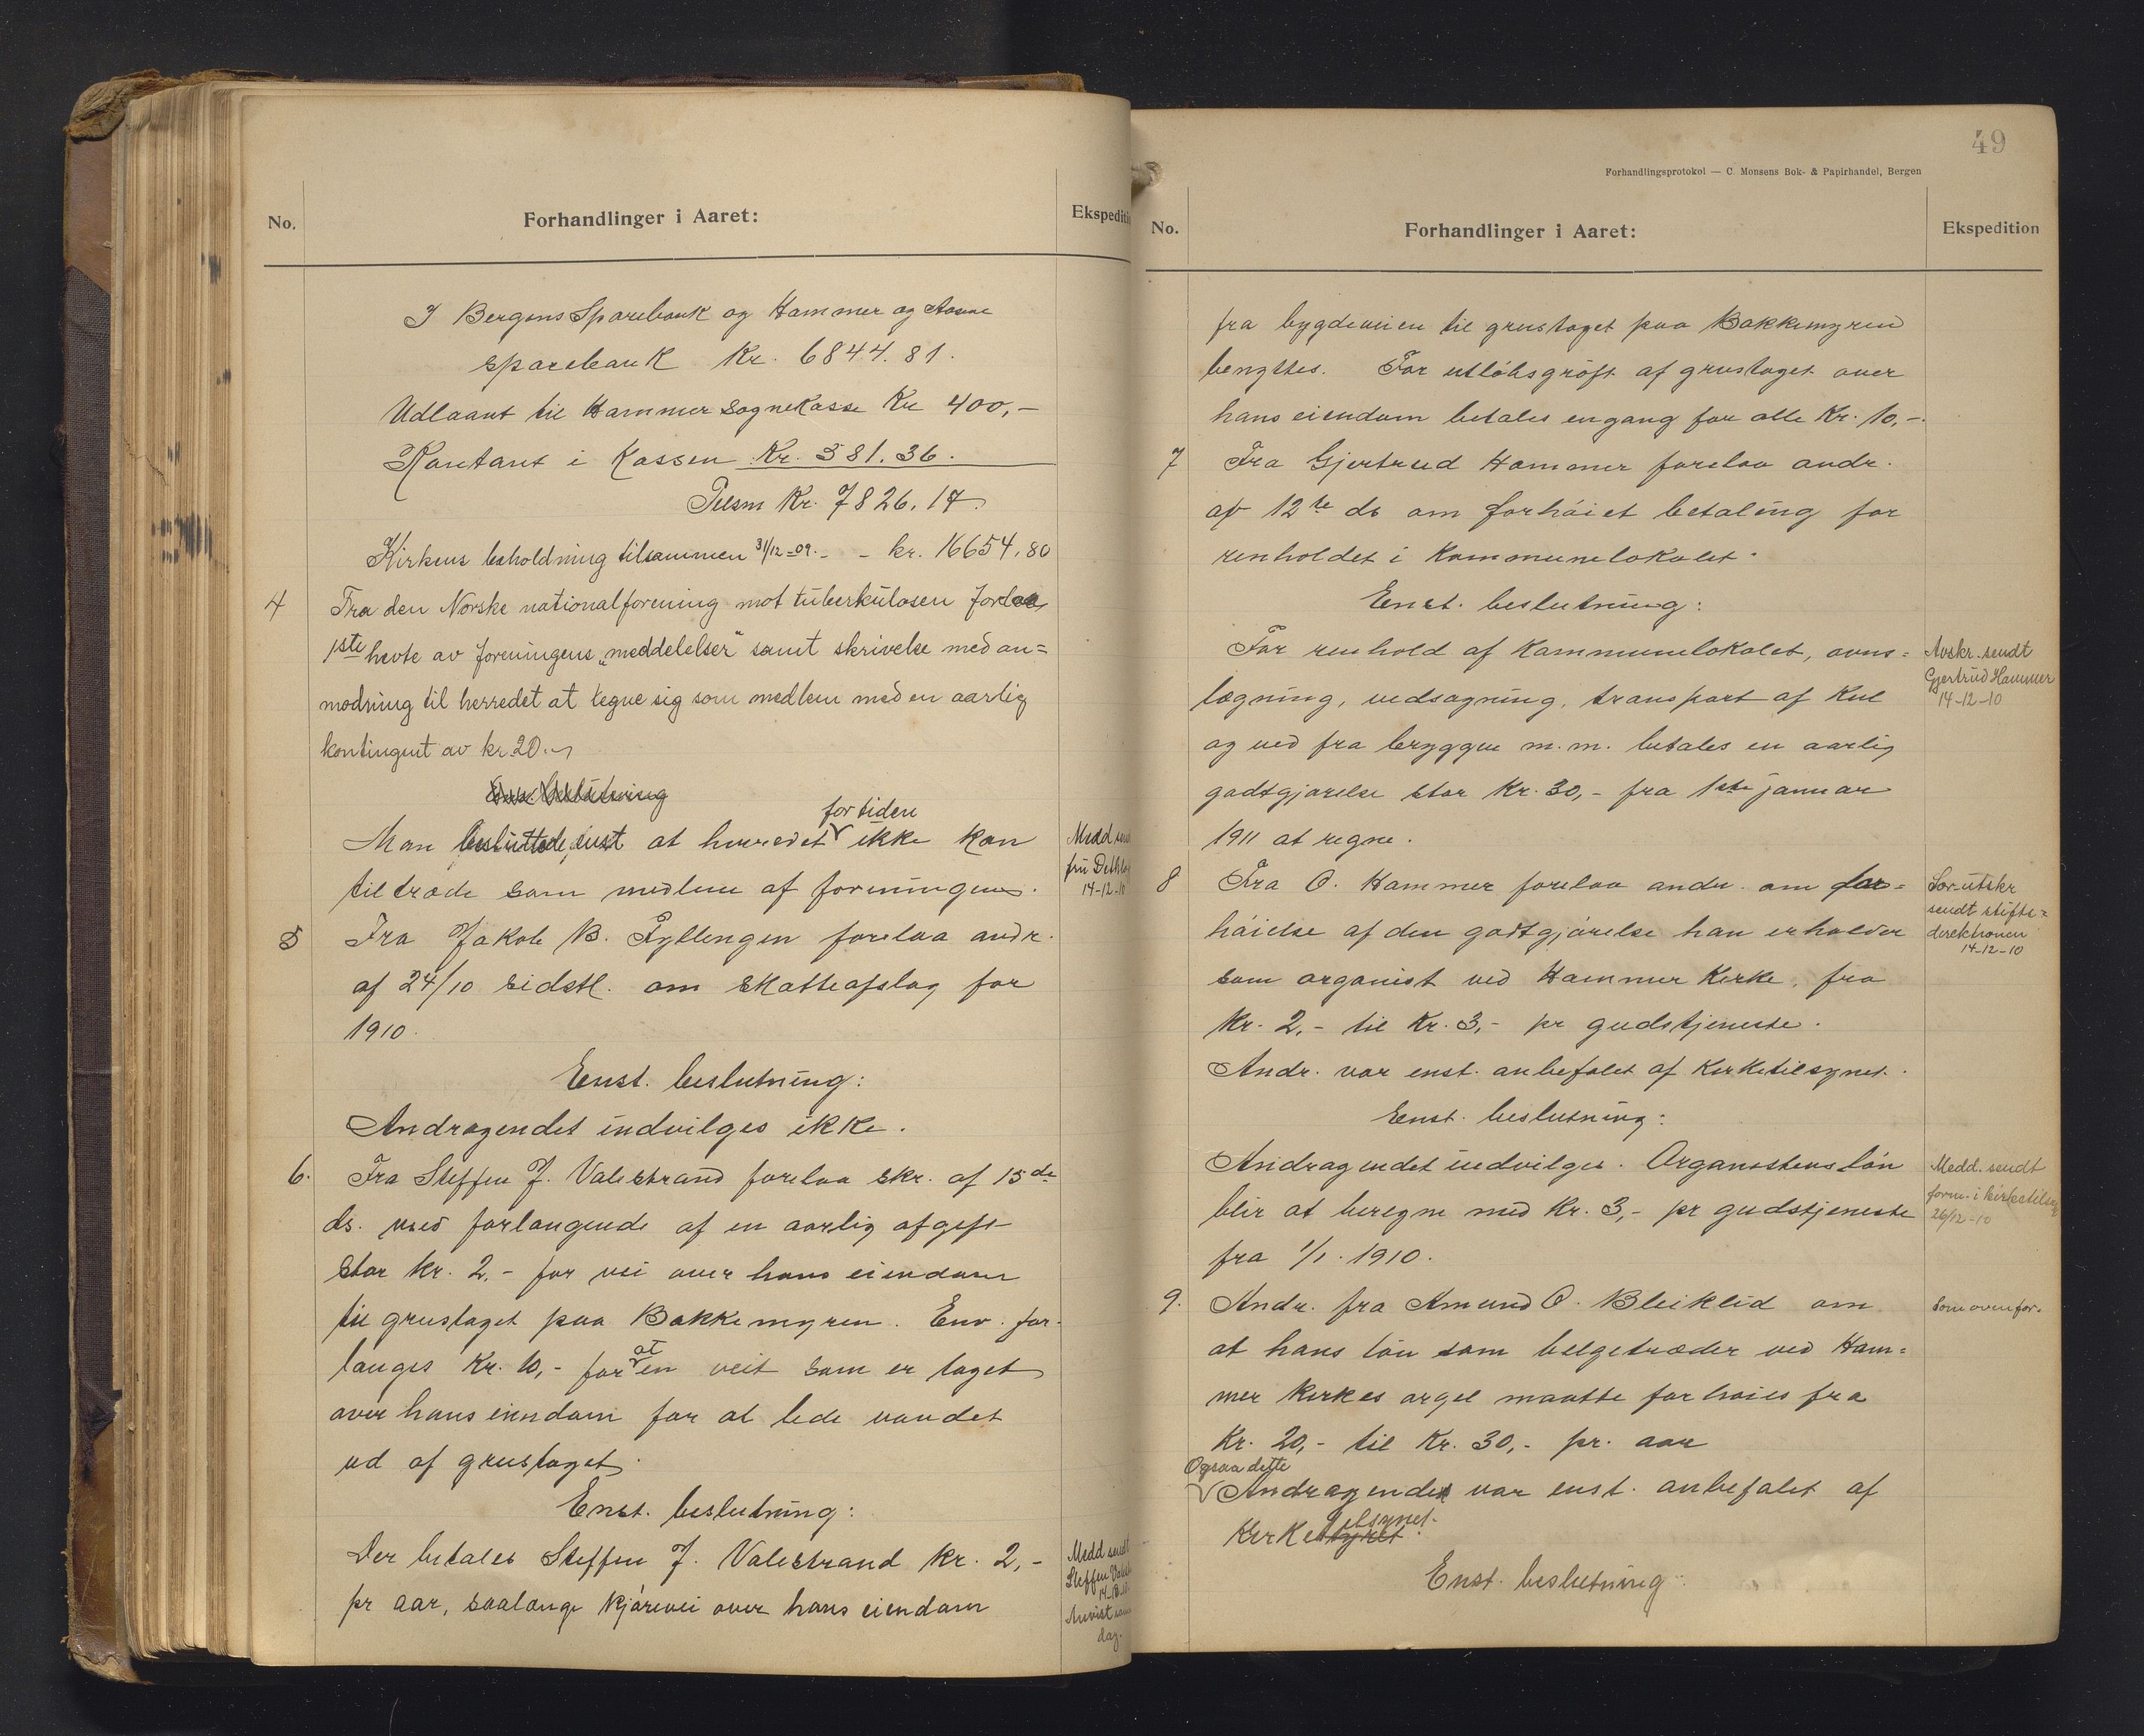 No.
Forhandlinger i Aaret:
I Bergens Sparebank og Hammer og
sparebank Kr. 6844.81.
Udlaant til Hammer sognekasse Kr 400,-
Kontant i Kassen Kr. 381.36.
Tilsm Kr. 7826.17.
Kirkens beholdning tilsammen 31/12-09. - - kr. 16654,80
4 Fra den Norske nationalforening mot tuberkulosen forlaa
1ste hevte av foreningens „meddelelser" samt skrivelse med an=
modning til herredet at tegne sig som medlem med en aarlig
kontingent av kr. 20.-
Enst. beslutning
for tiden
Man besluttede enst at herredet ikke kan
tiltræde som medlem af foreningen.
Medd
fru
14-12-10
5 Fra Jakob B. Fyllingen forelaa andr.
af 24/10 sidstl. om skatteafslag for
1910.
Enst. beslutning:
Andragendet indvilges ikke.
6. Fra Steffen J. Valestrand forelaa skr. af 15de
ds. med forlangende af en aarlig afgift
stor kr. 2,- for vei over hans eiendom
til grustaget paa Bakkemyren. Env. for-
langes Kr. 10,- for at en veit som er taget
over hans eiendom for at lede vandet
ud af grustaget.
Enst. beslutning:
Der betales Steffen J. Valestrand kr. 2,-
pr aar, saalænge kjørevei over hans eiendom
Medd sendt
Steffen
Anvist
dag.
49
Forhandlingsprotokol — C. Monsens Bok- & Papirhandel, Bergen
No.
Forhandlinger i Aaret:
Ekspedition
fra bygdeveien til grustaget paa Bakkemyren
benyttes. For utløbsgrøft af grustaget over
hans eiendom betales engang for alle Kr. 10,-.
7 Fra Gjertrud Hammer forelaa andr.
af 12te ds om forhøiet betaling for
renholdet i Kommunelokalet.
Enst. beslutning:
For renhold af Kommunelokalet, ovns=
lægning, vedsagning, transport af Kul
og ved fra bryggen m.m. betales en aarlig
godtgjørelse stor Kr. 30,- fra 1ste januar
1911 at regne.
Avskr. sendt
Gjertrud Hammer
14-12-10
8 Fra O. Hammer forelaa andr. om for=
høielse af den godtgjørelse han erholder
som organist ved Hammer Kirke, fra
Kr. 2,- til Kr. 3,- pr gudstjeneste.
Andr. var enst. anbefalet af Kirketilsynet.
Enst. beslutning:
Andragendet indvilges. Organistens løn
blir at beregne med Kr. 3,- pr gudstjeneste
fra 1/1. 1910.
utskr
sendt stifts=
direktionen
14-12-10
Medd. sendt
form. i kirketilsyn
26/12-10
9. Andr. fra Amund O. Bleiklid om
at hans løn som belgetræder ved Ham=
mer Kirkes orgel maatte forhøies fra
Kr. 20,- til Kr. 30,- pr. aar
Ogsaa dette
Andragende var enst. anbefalet af
tilsynet.
Kirkestyret.
Enst. beslutning:
Som ovenfor.